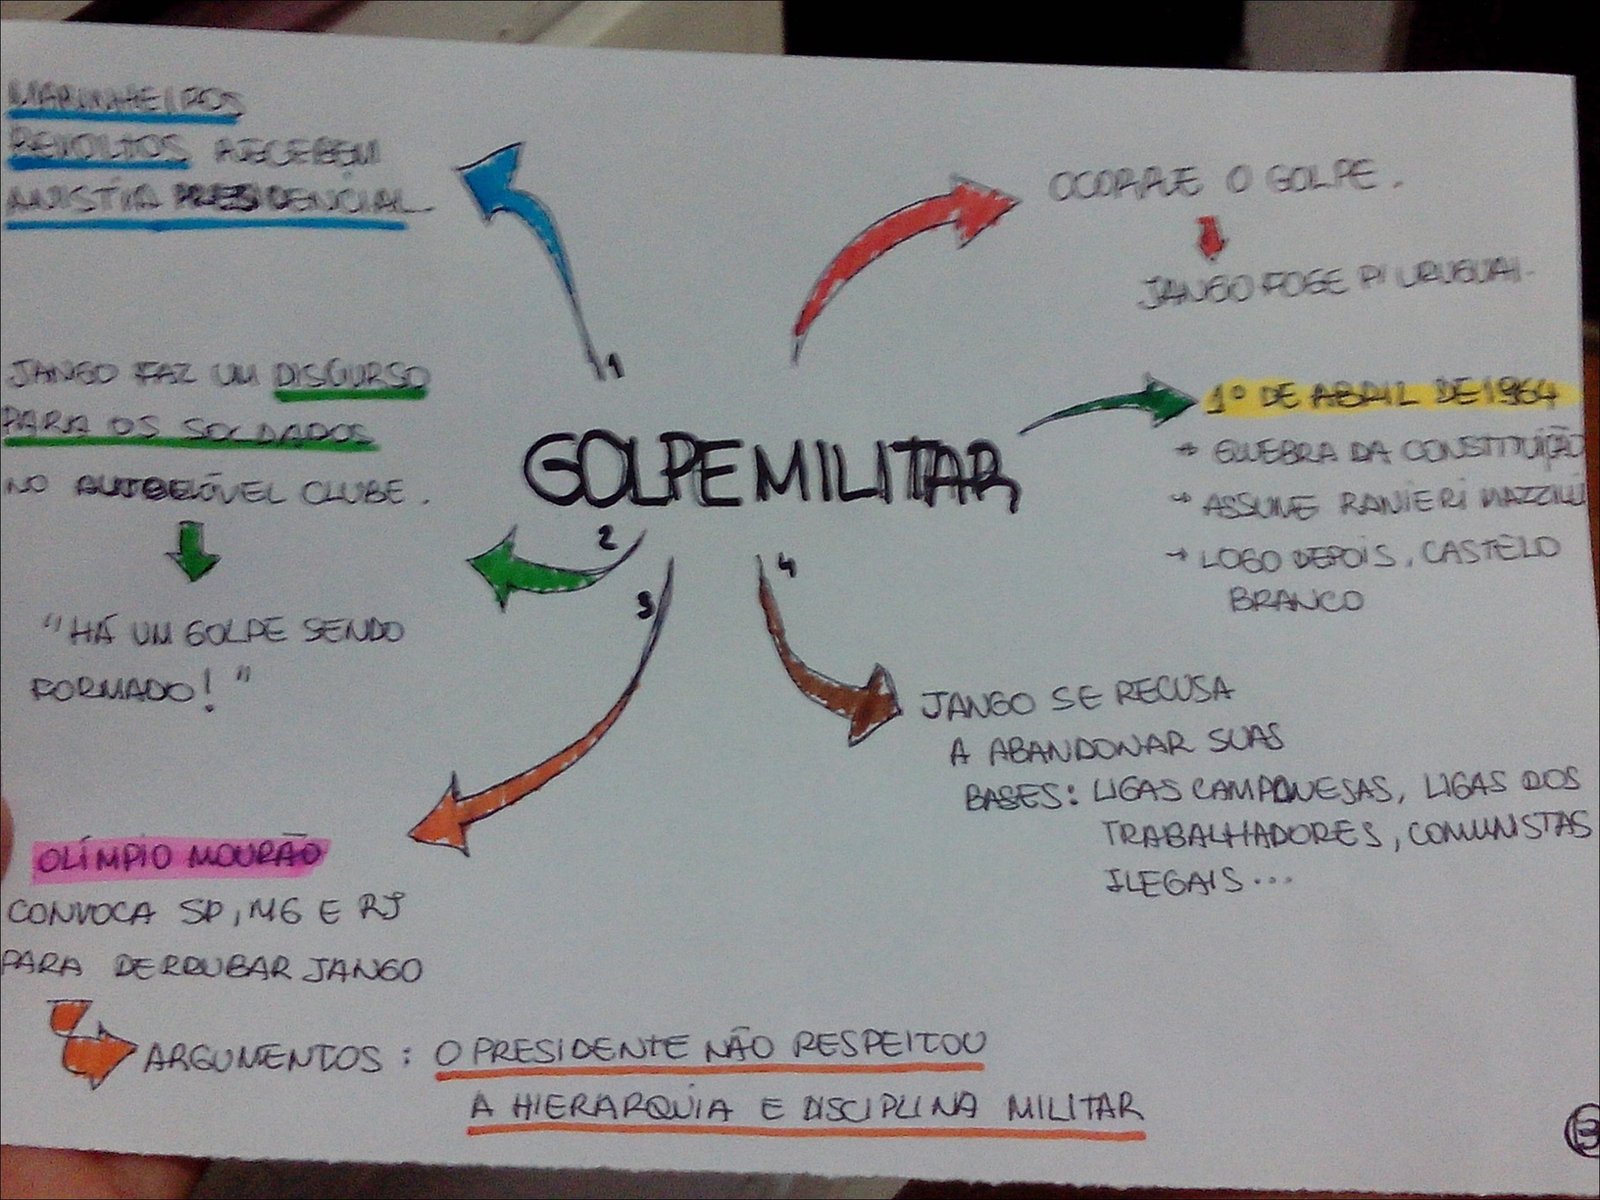 MARINHEIROS
REVOLTOS RECEBEM
ANISTIA PRESIDENCIAL.
1
JANGO FAZ UM DISCURSO
PARA OS SOLDADOS
NO AUTOMÓVEL CLUBE.
"HÁ UM GOLPE SENDO
FORMADO!"
GOLPE MILITAR
2
3
4
OLÍMPIO MOURÃO
CONVOCA SP, MG E RJ
PARA DERRUBAR JANGO
ARGUMENTOS: O PRESIDENTE NÃO RESPEITOU
A HIERARQUIA E DISCIPLINA MILITAR
JANGO SE RECUSA
A ABANDONAR SUAS
BASES: LIGAS CAMPONESAS, LIGAS DOS
TRABALHADORES, COMUNISTAS
ILEGAIS...
OCORRE O GOLPE.
JANGO FOGE P/ URUGUAI.
1º DE ABRIL DE 1964
→ QUEBRA DA CONSTITUIÇÃO
→ ASSUME RANIERI MAZZILLI
→ LOGO DEPOIS, CASTELO
BRANCO